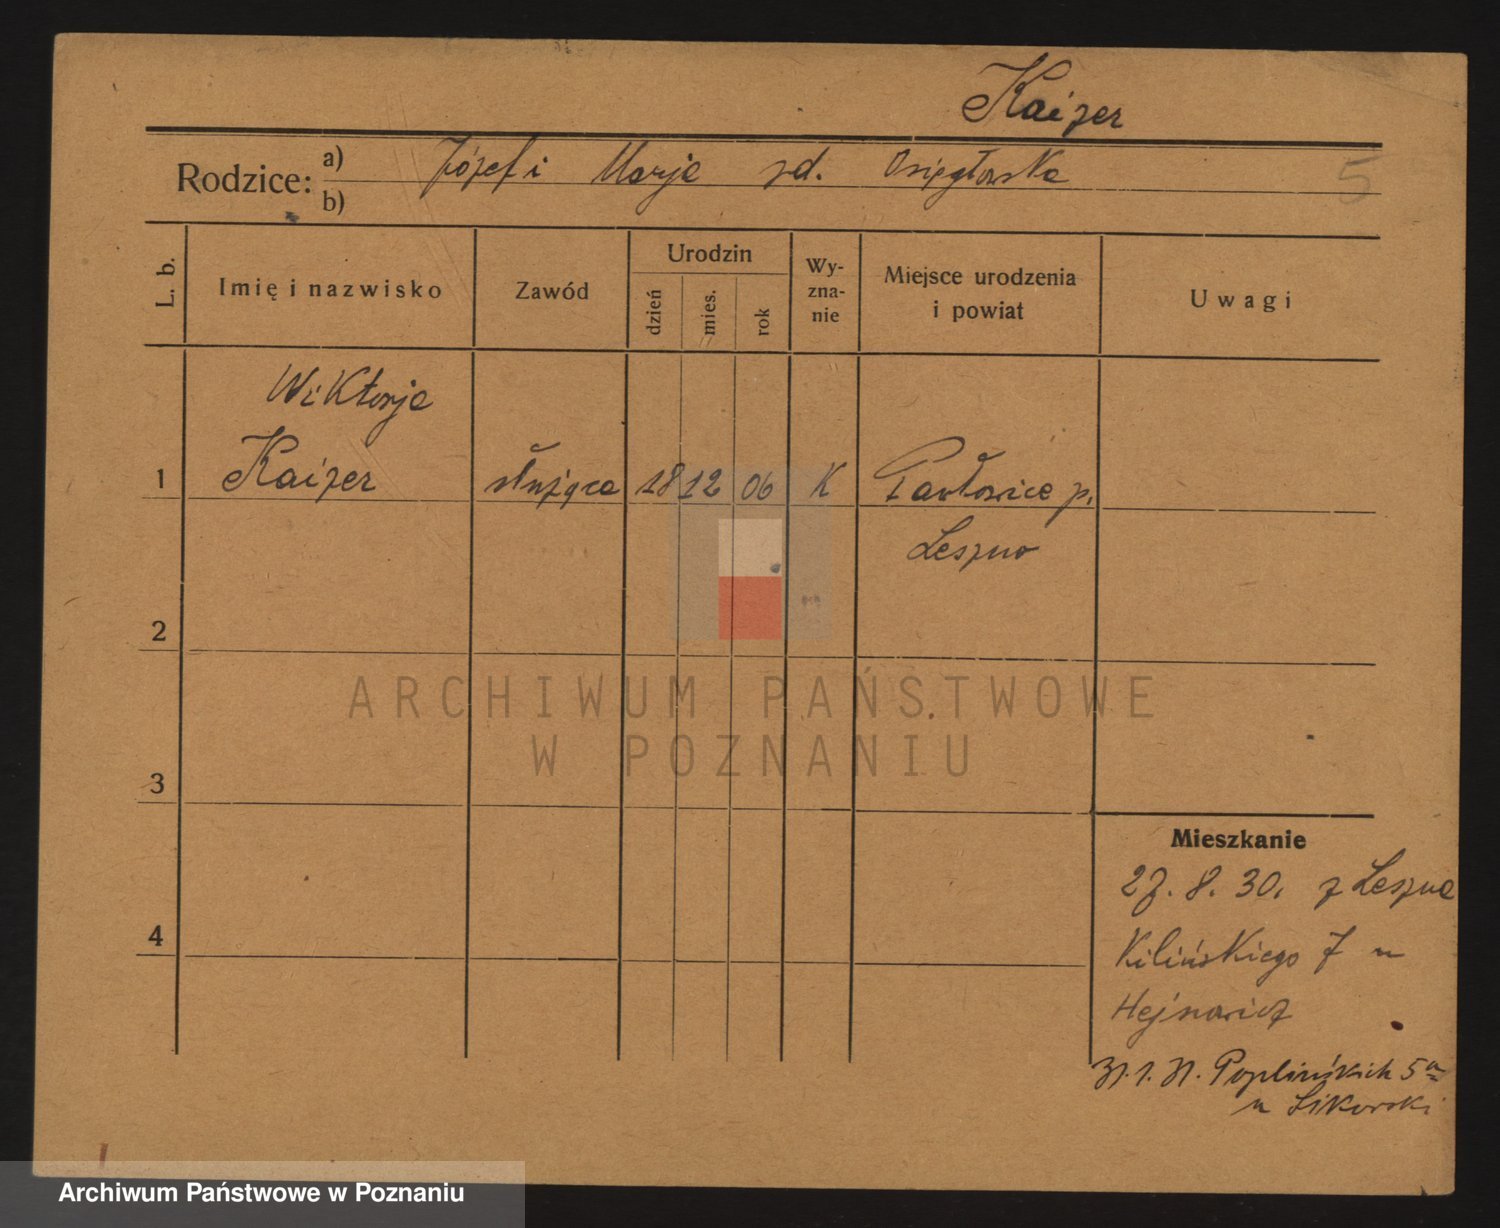 Kaizer
Rodzice: a) Józef i Marja zd. Osięgłowska
b)
5
L. b.
Imię i nazwisko
Zawód
Urodzin
dzień
mies.
rok
Wy-
zna-
nie
Miejsce urodzenia
i powiat
Uwagi
Wiktorja
1 Kaizer służąca 18 12 06 K Pawłowice p.
Leszno
2
3
4
Mieszkanie
27. 8. 30. z Leszna
Kilińskiego 7 u
Hejnowicz
31. 1. 31. Poplińskich 5a
u Sikorski
ARCHIWUM PAŃSTWOWE
W POZNANIU
Archiwum Państwowe w Poznaniu